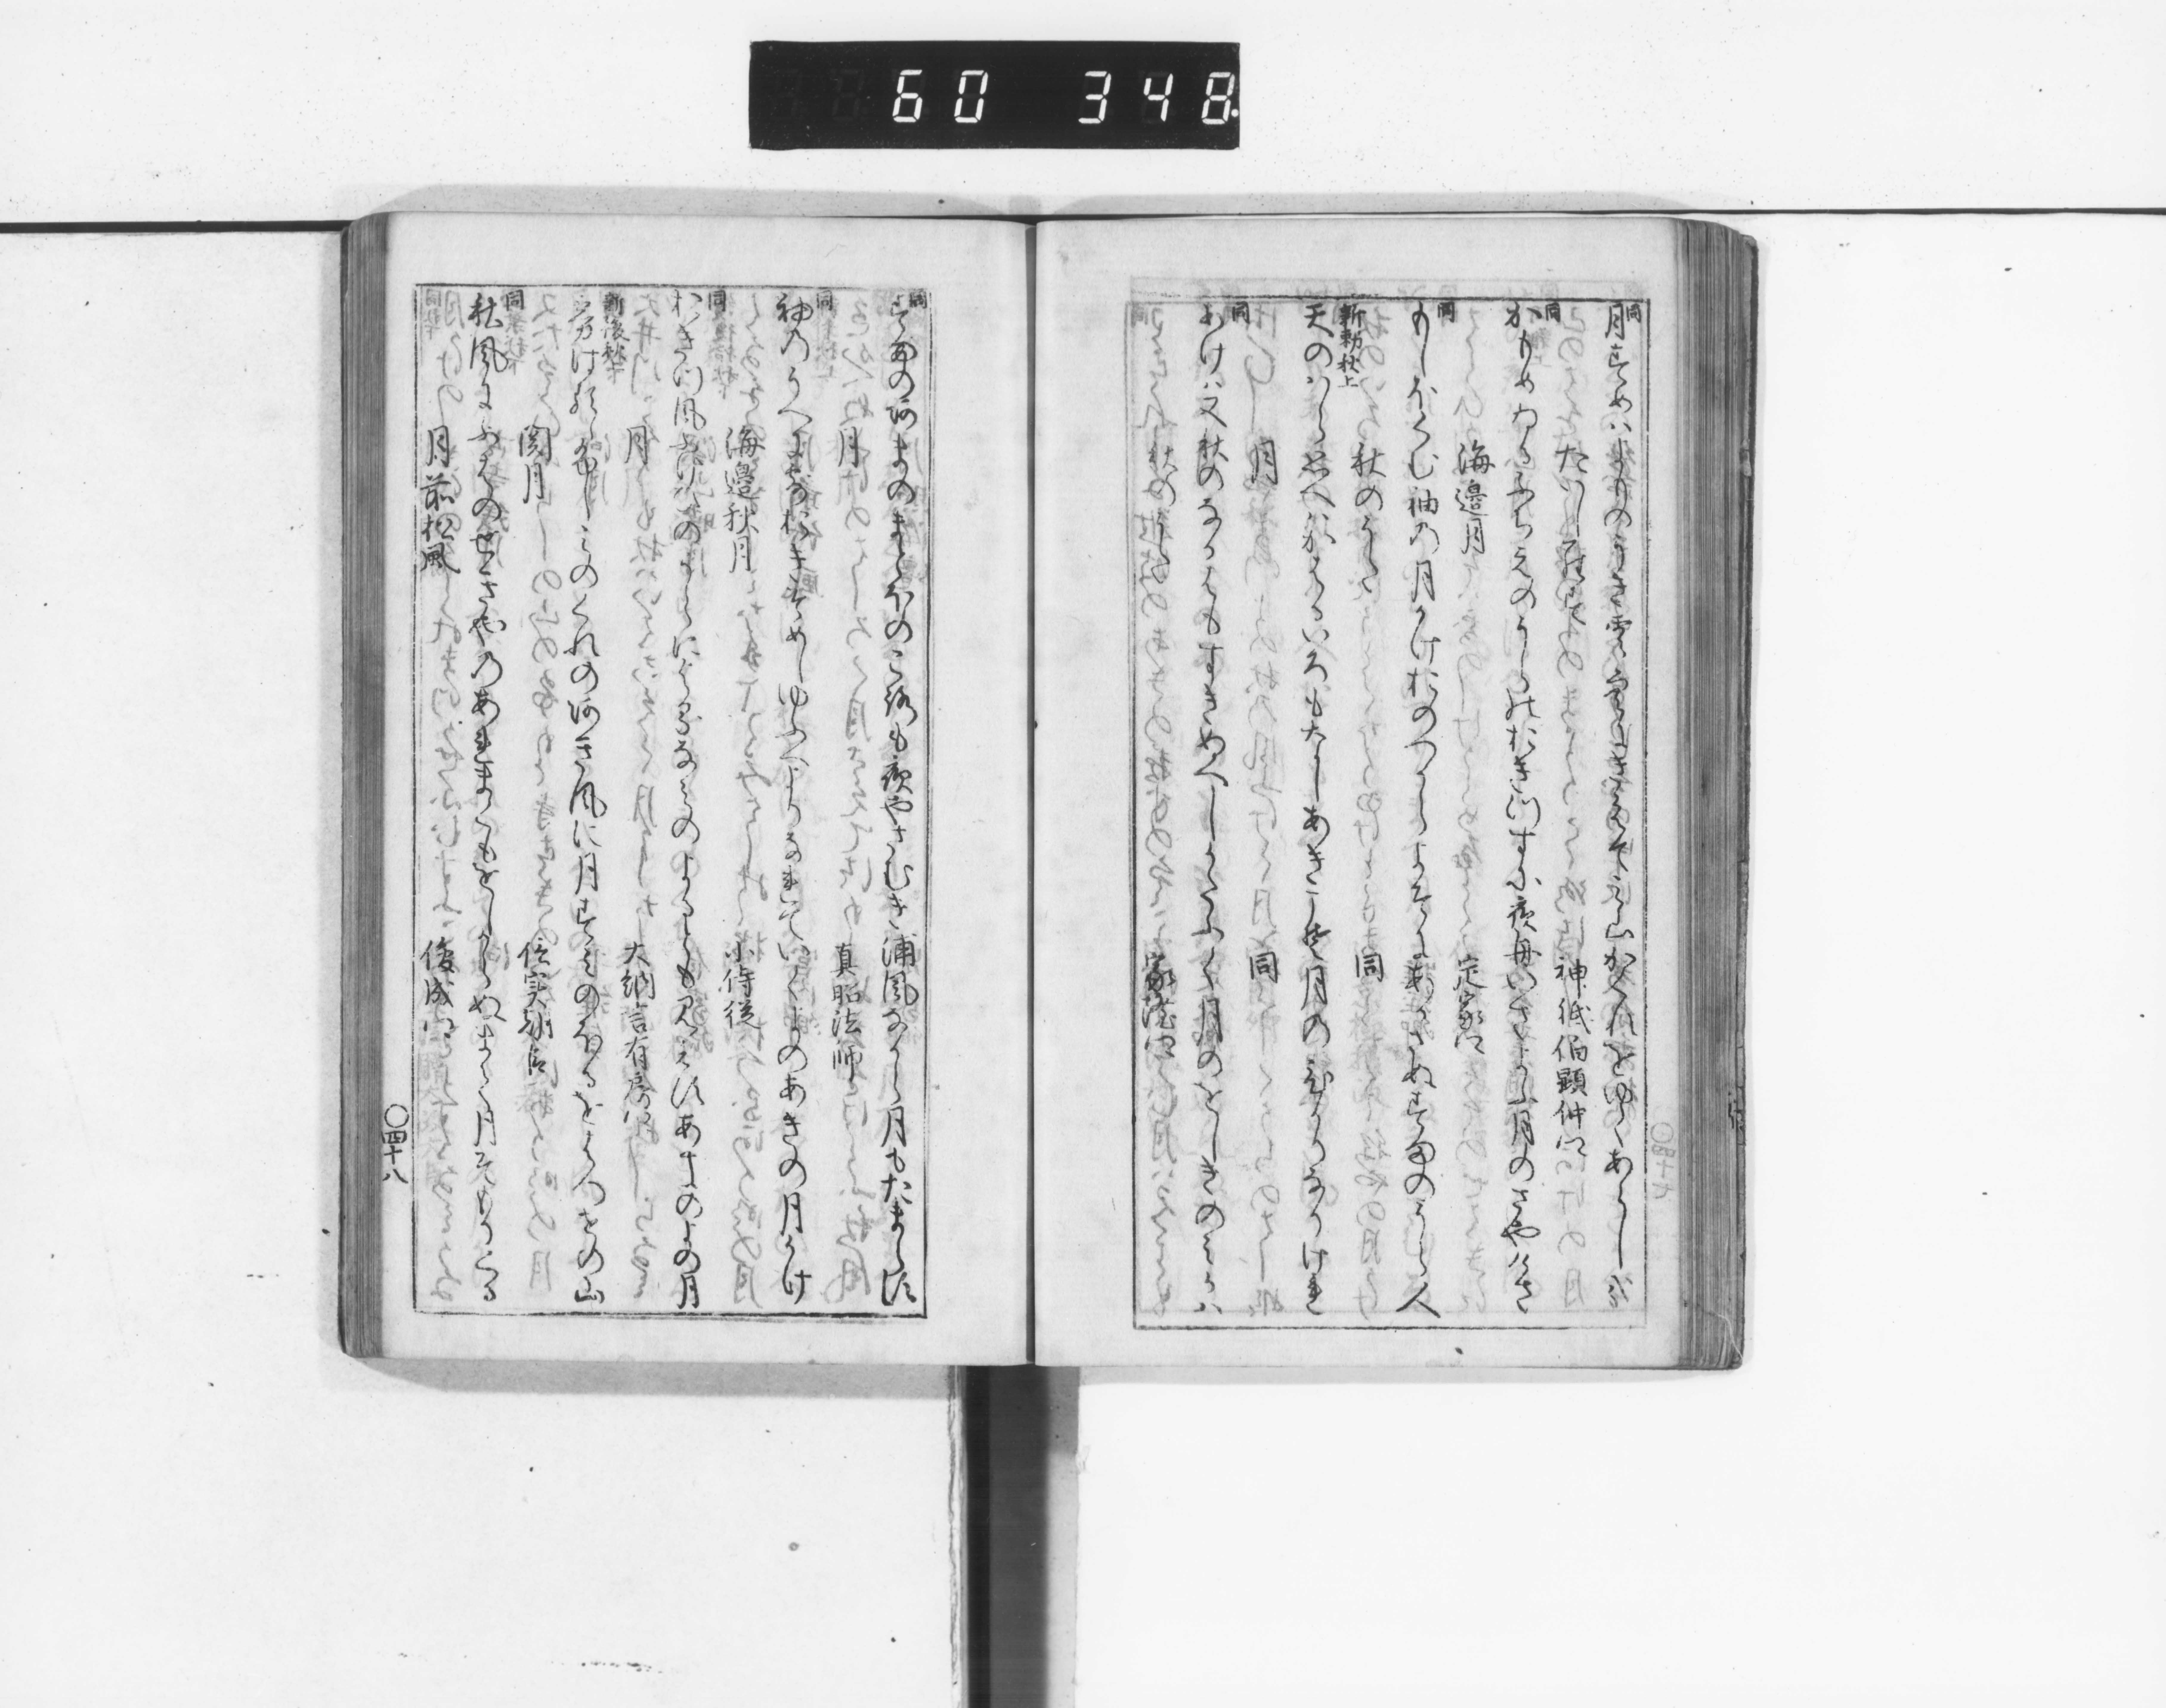 60 348
同
月すめはよものうき雲空にきえてみ山かくれをゆくあらし哉
たいしらす 神祇伯顕仲卿
同
かもめゐるふちえのうらのおきつすに夜舟いさよふ月のさやけさ
海邊月 定家卿
同
もしほくむ袖の月かけおのつからよそにあかさぬすまのうら人
新勅秋上
秋のうた 同
天のはら思へはかはるいろもなしあきこそ月のひかりなりけれ
月 同
同
あけは又秋のなかはもすきぬへしかたふく月のをしきのみかは
秋のうた 家隆卿
同
すまのあまのまとほのころも夜やさむき浦風なから月もたまらす
月 真昭法師
同
袖のうへに露おきそめしゆふへよりなれていくよのあきの月かけ
海邊秋月 小侍従
同
おきつ風ふけひのうらによるなみのよるとも見えすあきのよの月
月 大納言有房卿
新後秋下
くれのあき風に月すみのほる の山
関月 信実朝臣
同
秋風にふはのせきやのあれまくもをしからぬまて月そもりくる
月前松風 俊成卿
〇四十八